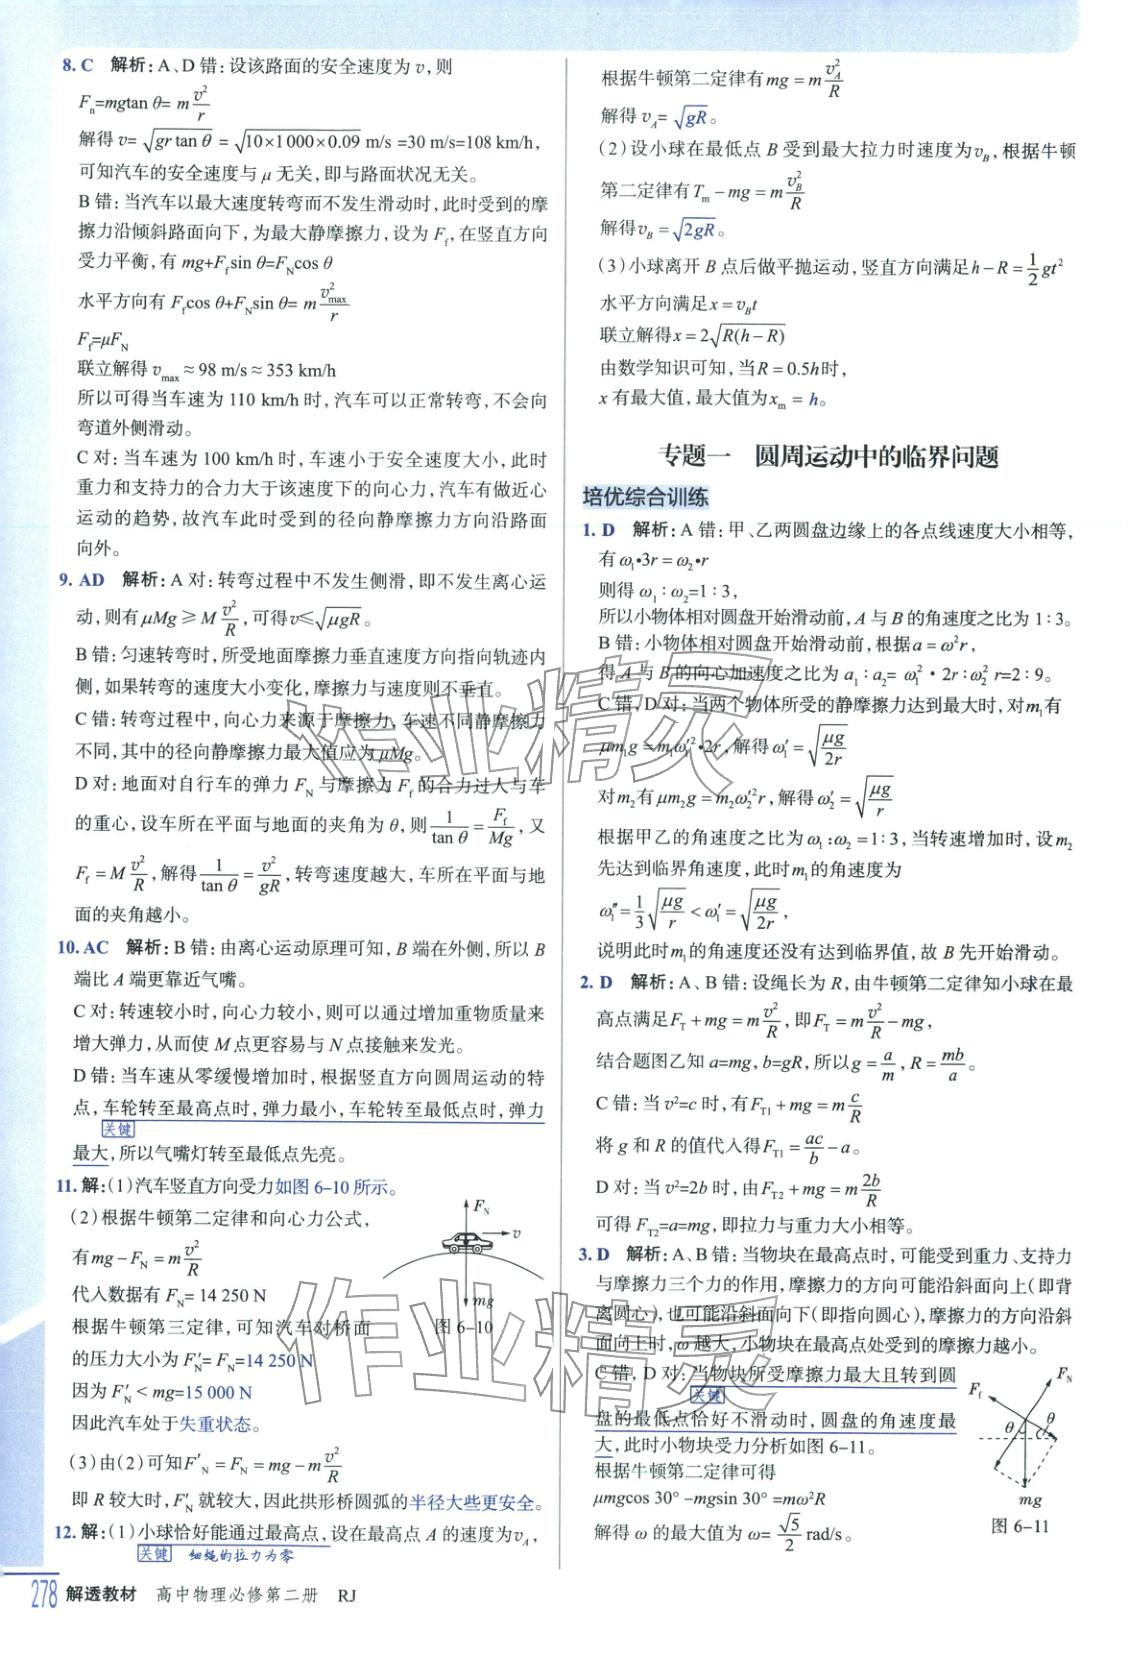 8. C 解析:A、D 错:设该路面的安全速度为 v,则
Fn=mgtan θ= m v²/r
解得 v= √(gr tan θ) = √(10×1 000×0.09) m/s =30 m/s=108 km/h,
可知汽车的安全速度与 μ 无关,即与路面状况无关。
B 错:当汽车以最大速度转弯而不发生滑动时,此时受到的摩
擦力沿倾斜路面向下,为最大静摩擦力,设为 Ff,在竖直方向
受力平衡,有 mg+Ffsin θ=FNcos θ
水平方向有 Ffcos θ+FNsin θ= m v²max/r
Ff=μFN
联立解得 vmax ≈ 98 m/s ≈ 353 km/h
所以可得当车速为 110 km/h 时,汽车可以正常转弯,不会向
弯道外侧滑动。
C 对:当车速为 100 km/h 时,车速小于安全速度大小,此时
重力和支持力的合力大于该速度下的向心力,汽车有做近心
运动的趋势,故汽车此时受到的径向静摩擦力方向沿路面
向外。
9. AD 解析:A 对:转弯过程中不发生侧滑,即不发生离心运
动,则有 μMg ≥ M v²/R,可得 v≤√(μgR)。
B 错:匀速转弯时,所受地面摩擦力垂直速度方向指向轨迹内
侧,如果转弯的速度大小变化,摩擦力与速度则不垂直。
C 错:转弯过程中,向心力来源于摩擦力,车速不同静摩擦力
不同,其中的径向静摩擦力最大值应为 μMg。
D 对:地面对自行车的弹力 FN 与摩擦力 Ff 的合力过人与车
的重心,设车所在平面与地面的夹角为 θ,则 1/tan θ = Ff/Mg,又
Ff = M v²/R,解得 1/tan θ = v²/gR,转弯速度越大,车所在平面与地
面的夹角越小。
10. AC 解析:B 错:由离心运动原理可知,B 端在外侧,所以 B
端比 A 端更靠近气嘴。
C 对:转速较小时,向心力较小,则可以通过增加重物质量来
增大弹力,从而使 M 点更容易与 N 点接触来发光。
D 错:当车速从零缓慢增加时,根据竖直方向圆周运动的特
点,车轮转至最高点时,弹力最小,车轮转至最低点时,弹力
关键
最大,所以气嘴灯转至最低点先亮。
11. 解:(1)汽车竖直方向受力如图 6-10 所示。
(2)根据牛顿第二定律和向心力公式,
有 mg − FN = m v²/R
代入数据有 FN= 14 250 N
根据牛顿第三定律,可知汽车对桥面
的压力大小为 F′N= FN=14 250 N
因为 F′N < mg=15 000 N
因此汽车处于失重状态。
FN
v
mg
图 6-10
(3)由(2)可知F′N = FN = mg − m v²/R
即 R 较大时,F′N 就较大,因此拱形桥圆弧的半径大些更安全。
12. 解:(1)小球恰好能通过最高点,设在最高点 A 的速度为 vA,
关键 细绳的拉力为零
278 解透教材 高中物理必修第二册 RJ
根据牛顿第二定律有 mg = m v²A/R
解得 vA= √(gR)。
(2)设小球在最低点 B 受到最大拉力时速度为 vB,根据牛顿
第二定律有 Tm − mg = m v²B/R
解得 vB = √(2gR)。
(3)小球离开 B 点后做平抛运动,竖直方向满足 h − R = 1/2 gt²
水平方向满足 x = vBt
联立解得 x = 2√(R(h−R))
由数学知识可知,当 R = 0.5h时,
x 有最大值,最大值为 xm = h。
专题一 圆周运动中的临界问题
培优综合训练
1. D 解析:A 错:甲、乙两圆盘边缘上的各点线速度大小相等,
有 ω1·3r = ω2·r
则得 ω1∶ω2=1∶3,
所以小物体相对圆盘开始滑动前,A 与 B 的角速度之比为 1∶3。
B 错:小物体相对圆盘开始滑动前,根据 a = ω²r,
得 A 与 B 的向心加速度之比为 a1∶a2= ω1²·2r∶ω2² r=2∶9。
C 错,D 对:当两个物体所受的静摩擦力达到最大时,对 m1 有
μm1g = m1ω′1²·2r,解得 ω′1 = √(μg/2r)
对 m2 有 μm2g = m2ω′2²r,解得 ω′2 = √(μg/r)
根据甲乙的角速度之比为 ω1∶ω2 = 1∶3,当转速增加时,设 m2
先达到临界角速度,此时 m1 的角速度为
ω″1 = 1/3 √(μg/r) < ω′1 = √(μg/2r),
说明此时 m1 的角速度还没有达到临界值,故 B 先开始滑动。
2. D 解析:A、B 错:设绳长为 R,由牛顿第二定律知小球在最
高点满足 FT + mg = m v²/R,即 FT = m v²/R − mg,
结合题图乙知 a=mg,b=gR,所以 g = a/m,R = mb/a。
C 错:当 v²=c 时,有 FT1 + mg = m c/R
将 g 和 R 的值代入得 FT1 = ac/b − a。
D 对:当 v²=2b 时,由 FT2 + mg = m 2b/R
可得 FT2=a=mg,即拉力与重力大小相等。
3. D 解析:A、B 错:当物块在最高点时,可能受到重力、支持力
与摩擦力三个力的作用,摩擦力的方向可能沿斜面向上(即背
离圆心),也可能沿斜面向下(即指向圆心),摩擦力的方向沿斜
面向上时,ω 越大,小物块在最高点处受到的摩擦力越小。
C 错,D 对:当物块所受摩擦力最大且转到圆
关键
盘的最低点恰好不滑动时,圆盘的角速度最
大,此时小物块受力分析如图 6-11。
根据牛顿第二定律可得
μmgcos 30° −mgsin 30° =mω²R
解得 ω 的最大值为 ω= √5/2 rad/s。
Ff
FN
θ
θ
mg
图 6-11
作业精灵
作业精灵